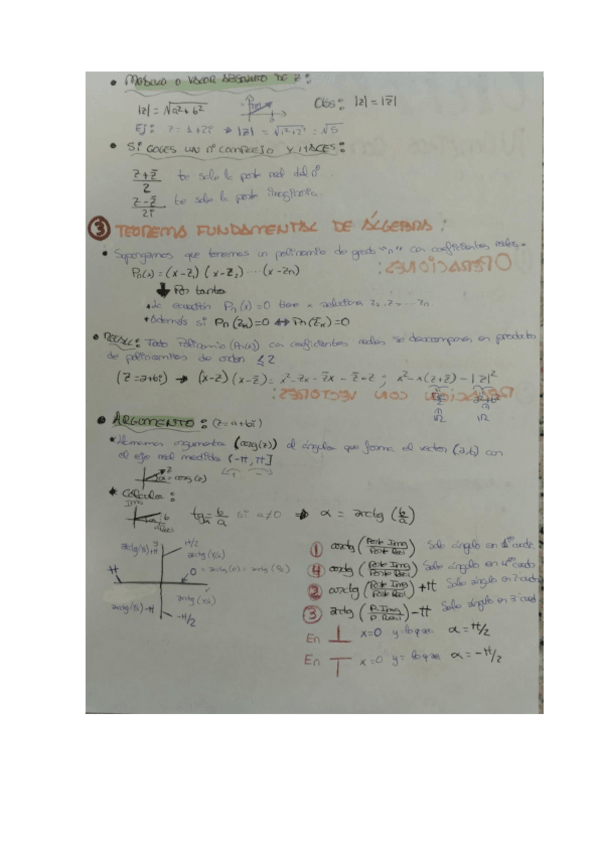 • MÓDULO O VALOR ABSOLUTO DE Z:
|z| = √a²+b² Obs: |z| = |z̄|
Ej: z = 1+2i → |z| = √1²+2² = √5
• Si COGES UN nº COMPLEJO Y HACES:
z+z̄ / 2 te sale la parte real del nº
z-z̄ / 2i te sale la parte imaginaria.
③ TEOREMA FUNDAMENTAL DE ÁLGEBRA:
• Supongamos que tenemos un polinomio de grado "n" con coeficientes reales.
Pn(x) = (x-z₁) (x-z₂) ... (x-zn)
Por tanto
• La ecuación Pn(x)=0 tiene n soluciones z₁, z₂, ... zn
• Además si Pn(zn)=0 ↔ Pn(z̄n)=0
• Todo Polinomio (Pn(x)) con coeficientes reales se descompone en producto
de polinomios de orden ≤2
(z=a+bi) → (x-z) (x-z̄) = x²-zx-z̄x-z̄·z ; x²-x(z+z̄)-|z|²
• ARGUMENTO: (z=a+bi)
• Llamamos argumento (arg(z)) al ángulo que forma el vector (a,b) con
el eje real medido (-π, π]
α = arg(z)
• Calcular:
tg = b/a si a≠0 → α = arctg (b/a)
arctg(b/a)+π π/2 arctg(b/a)
π 0
arctg(b/a)-π -π/2 arctg(b/a)
① arctg (Part Imag / Part Real) Sale ángulo en 1º cuad
④ arctg (Part Imag / Part Real) Sale ángulo en 4º cuad
② arctg (Part Imag / Part Real) +π Sale ángulo en 2º cuad
③ arctg (P. Imag / P. Real) -π Sale ángulo en 3º cuad
En ⊥ x=0 y=lo que α=π/2
En ⊤ x=0 y=lo que α=-π/2